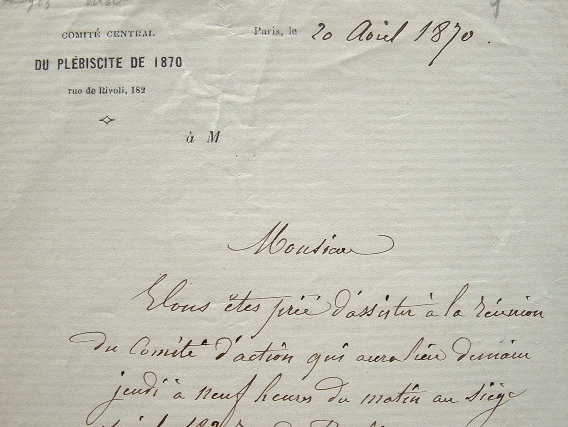 COMITÉ CENTRAL
DU PLÉBISCITE DE 1870
rue de Rivoli, 182
Paris, le 20 Avril 1870.
à M
Monsieur
Vous êtes prié d'assister à la réunion
du Comité d'action qui aura lieu demain
jeudi à neuf heures du matin au siège